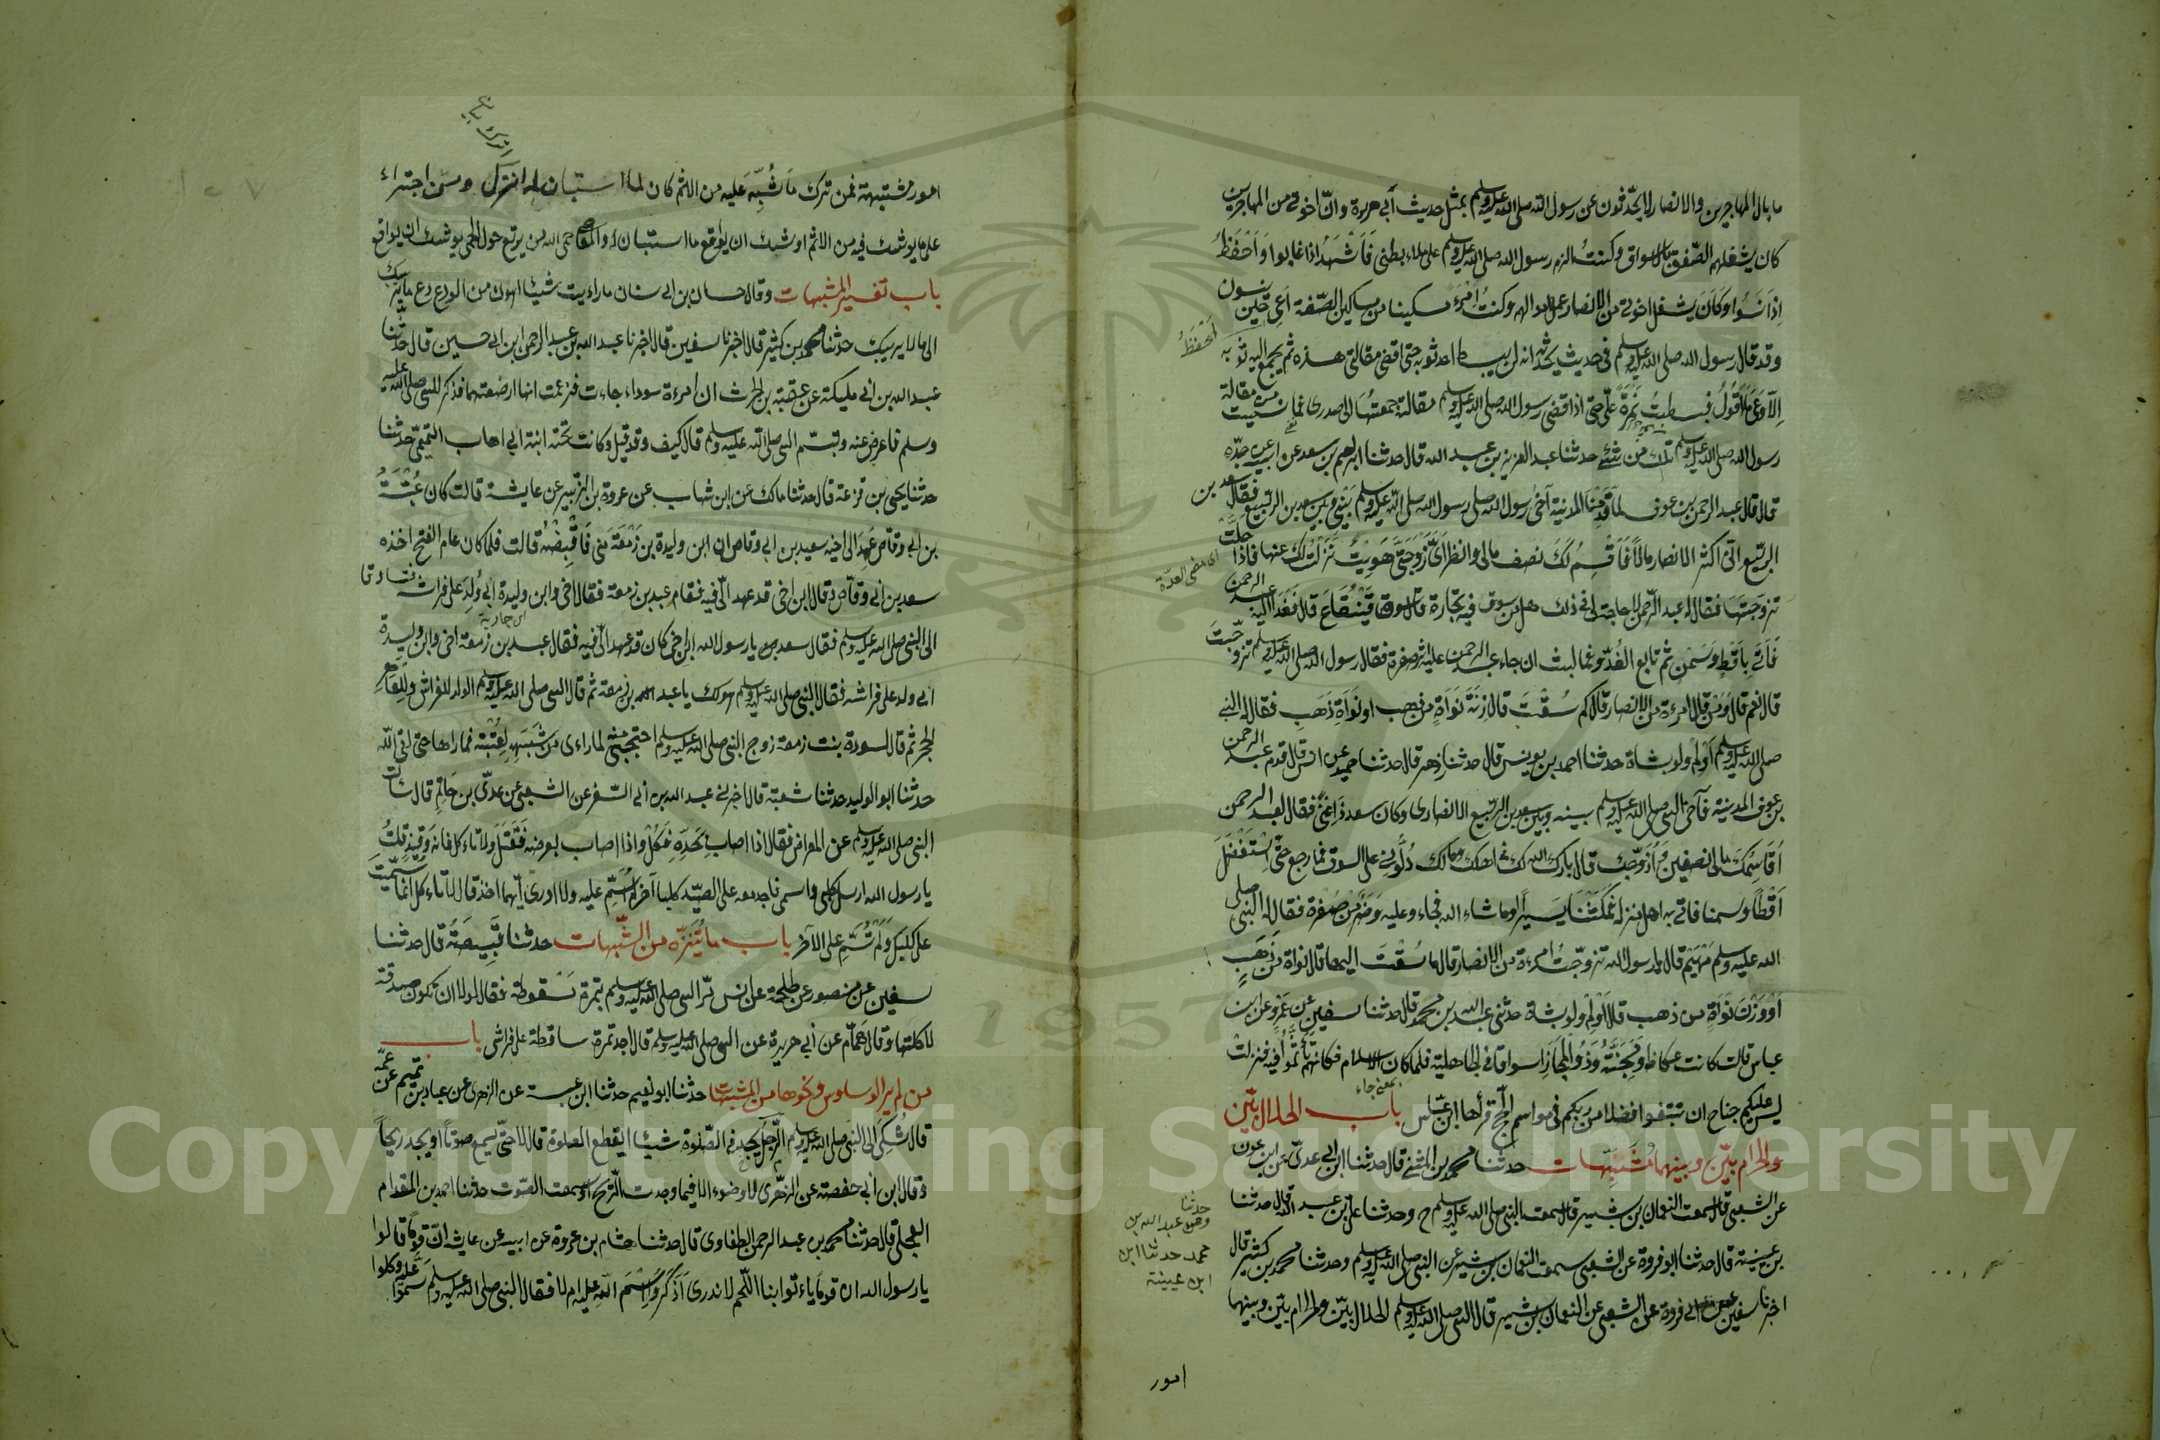 ما بال المهاجرين والانصار لا يحدّثون عن رسول الله صلى الله عليه وسلم بمثل حديث أبي هريرة وانّ اخوتي من المهاجرين
كان يشغلهم الصّفق بالاسواق وكنت الزم رسول الله صلى الله عليه وسلم على ملاء بطني فَأَشْهَدُ اذا غابوا وَأَحْفَظُ
اِذَا نَسُوا وكَانَ يشغل اخوتي من الانصار عمل اموالهم وكنتُ امْرَءً مسكينا من مساكين الصّفة اَعِي حين ينسون
وقد قال رسول الله صلى الله عليه وسلم في حديث يحدّثه انه لن يبسط احد ثوبه حتى اقضي مقالتي هذه ثم يجمع اليه ثوبه
اِلّا وَعَى مَا أَقُولُ فبسطتُ نَمِرَةً عليّ حتى اذا قضى رسول الله صلى الله عليه وسلم مقالته جمعتُها الى صدري فما نسيت من مقالة
رسول الله صلى الله عليه وسلم تلك من شيء حدثنا عبد العزيز بن عبد الله قال حدثنا ابراهيم بن سعد عن ابيه عن جدّه
قال قال عبد الرحمن بن عوف لما قَدِمْنَا المدينة آخى رسول الله صلى رسول الله صلى الله عليه وسلم بَيْنِي وبين سعد بن الربيع فقال سعد بن
الربّيع انّي اكثر الانصار مالاً فَأَقْسِمُ لَكَ نصف مالي وانظر اَيَّ زَوْجَتَيَّ هَوِيْتَ نَزَلْتُ لَكَ عنها فاذا حَلَّتْ
تزوجتَها فقال له عبد الرّحمن لا حاجة لي في ذلك هل من سوق فيه تجارة قال سوق قَيْنُقَاعَ قال فَغَدَا اليه عبد الرحمن
فَأَتَى بِأَقِطٍ وَسَمْنٍ ثم تابع الغُدُوَّ فما لبث ان جاء عبد الرحمن عليه اثر صفرة فقال رسول الله صلى الله عليه وسلم تزوّجتَ
قال نعم قال وَمَنْ قال امرءة من الانصار قال كم سُقْتَ قال زنَةَ نَوَاةٍ من ذهب او نَوَاةَ ذَهَبٍ فقال له النبي
صلى الله عليه وسلم اَوْلِمْ ولو بشاة حدثنا احمد بن يونس قال حدثنا زهير قال حدثنا حميد عن انس قال قدم عبد الرحمن
بن عوف المدينة فآخى النبي صلى الله عليه وسلم بينه وبين سعد بن الربّيع الانصاري وكان سعد ذَا غِنًى فقال لعبد الرحمن
أُقَاسِمُكَ مالي نصفين وَأُزَوِّجُكَ قال بارك الله لك في اهلك ومالك دُلُّونِي على السوق فما رجع حتى اسْتَفْضَلَ
أَقْطًا وسمنا فاتى به اهل منزله فمكثنا يسيرًا وما شاء الله فجاء وعليه وَضَرٌ من صُفْرة فقال له النبي صلى
الله عليه وسلم مَهْيَمْ قال يا رسول الله تزوجتُ امرءة من الانصار قال ما سُقْتَ اليها قال نواة من ذَهَبٍ
اَوْ وَزْنَ نَوَاةٍ من ذهب قال اَوْلِمْ ولو بشاة حدثني عبد الله بن محمد قال حدثنا سفين عن عَمْرٍو عن ابن
عباس قال كانت عكاظ ومَجَنَّةُ وَذُو الْمَجَازِ اسواقا في الجاهلية فلما كان الاسلام فكانهم تَأَثَّمُوا فيه فنزلت
ليس عليكم جناح ان تبتغوا فضلا من ربكم في مواسم الحج قرأها ابن عبّاس باب الحلال بيّن
والحرام بيّن وبينهما مُشَبَّهات حدثنا محمد بن المثنى قال حدثنا ابن ابي عديّ عن ابن عون
عن الشعبي قال سمعت النعمان بن بشير قال سمعت النبي صلى الله عليه وسلم ح وحدثنا علي بن عبد الله قال حدثنا
بن عيينة قال حدثنا ابو فروة عن الشعبي سمعت النعمان بن بشير عن النبي صلى الله عليه وسلم وحدثنا محمد بن كثير قال
اخبرنا سفين عن ابي فروة عن الشعبي عن النعمان بن بشير قال قال النبي صلى الله عليه وسلم الحلال بيّن والحرام بيّن وبينهما
امور
لَحَفَظُ
اى مضى العدّة
بمعنى جاء
حدثنا
وحدثني عبد الله بن
محمد حدثنا ابن
ابن عيينة
امور مشتبهة فمن ترك مَا شُبِّهَ عليه من الاثم كان لما استبان له اترك ومن اجتراء
على ما يوشك فيه من الاثم اوشك ان يواقع ما استبان له والمعاصي حمى الله من يرتع حول الحمى يوشك ان يواقع
باب تفسير المشبهات وقال حسان بن ابي سنان ما راءيت شيئا اهون من الورع دع ما يريبك
الى ما لا يريبك حدثنا محمد بن كثير قال اخبرنا سفين قال اخبرنا عبد الله بن عبد الرحمن ابن ابي حسين قال حدثنا
عبد الله بن ابي مليكة عن عقبة بن الحرث ان امرءة سوداء جاءت فزعمت انها ارضعتهما فذكر للنبي صلى الله عليه
وسلم فاعرض عنه وتبسّم النبي صلى الله عليه وسلم قال كيف وقد قيل وكانت تحته ابنة ابي اهاب التميمّي حدثنا
حدثنا يحيى بن قزعة قال حدثنا مالك عن ابن شهاب عن عروة بن الزبير عن عايشة قالت كان عُتْبَةُ
بن ابي وقاص عَهِدَ الى اخيه سعد بن ابي وقاص ان ابن وليدة بن زَمْعَةَ مني فَاقْبِضْهُ قالت فلما كان عام الفتح اخذه
سعد بن ابي وقّاص وقال ابن اخي قد عهد اليّ فيه فقام عبد بن زمعة فقال اخي وابن وليدة ابي وُلِدَ على فراشه فتساوقا
الى النبي صلى الله عليه وسلم فقال سعد يا رسول الله ابن اخي كان قد عهد اليّ فيه فقال عبد بن زمعة اخي وابن وليدة
ابي ولد على فراشه فقال النبي صلى الله عليه وسلم هو لك يا عبد بن زمعة ثم قال النبي صلى الله عليه وسلم الولد للفراش وللعَاهِرِ
الحجر ثم قال لسودة بنت زمعة زوج النبي صلى الله عليه وسلم احتجبي منه لما راءى من شَبَهِهِ بِعُتْبة فما راها حتى لقي الله
حدثنا ابو الوليد حدثنا شعبة قال اخبرني عبد الله بن أبي السّفر عن الشعبي عن عديّ بن حَاتِمٍ قال سألت
النبي صلى الله عليه وسلم عن المعراض فقال اذا اصاب بِحَدِّهِ فَكُلْ واذا اصاب بعرضه فَقَتَلَ ولا تاءكل فانه وَقِيذٌ قلتُ
يا رسول الله ارسل كلبي واسمي فاجد معه على الصيد كلبا آخر لم أُسَمِّ عليه ولا ادري ايّهما اخذ قال لا تاءكل انما سمّيت
على كلبك وَلَمْ تُسَمِّ على الآخر باب ما يُتَنَزَّه من الشّبهات حدثنا قَبِيصَةُ قال حدثنا
سفين عن منصور عن طلحة عن انس مرّ النبي صلى الله عليه وسلم بتمرة مَسْقوطة فقال لولا ان تكون صدقة
لاكلتها وقال همّام عن أبي هريرة عن النبي صلى الله عليه وسلم قال اجد تمرة ساقطة على فراشي باب
من لم ير الوساوس ونحوها من المشبهات حدثنا ابو نعيم حدثنا ابن عيينة عن الزهري عن عباد بن تميم عن عمّه
قال شُكِيَ الى النبي صلى الله عليه وسلم الرّجل يجد في الصّلوة شيئا ايقطع الصلوة قال لا حتّى يسمع صوتًا او يجد ريحًا
وقال ابن أبي حفصة عن الزهّري لا وضوء الا فيما وجدت الرّيح او سمعت الصّوت حدثنا احمد بن المقدام
العجلي قال حدثنا محمد بن عبد الرحمن الطفاوي قال حدثنا هشام بن عروة عن ابيه عن عايشة انّ قومًا قالوا
يا رسول الله ان قوما ياءتوننا باللّحم لا ندري أَذَكَرُوا اسْمَ اللّه عليه ام لا فقال النبي صلى الله عليه وسلم سَمُّوا عليه وكلوا
اى جارية
Copyright © King Saud University
1957